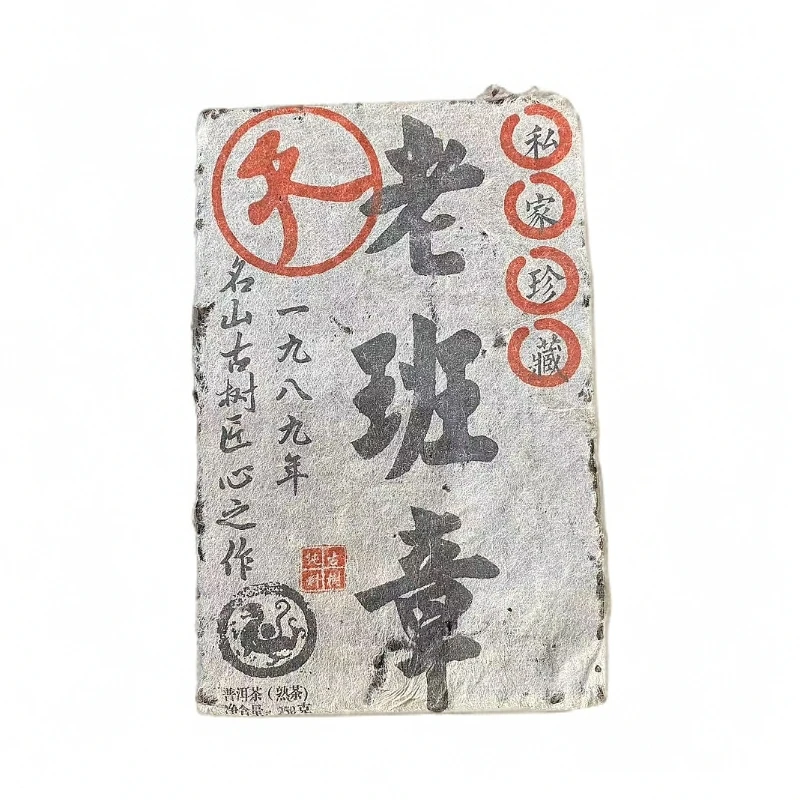 私家珍藏
老班章
一九八九年
名山古树匠心之作
古树
纯料
普洱茶（熟茶）
净含量：250克